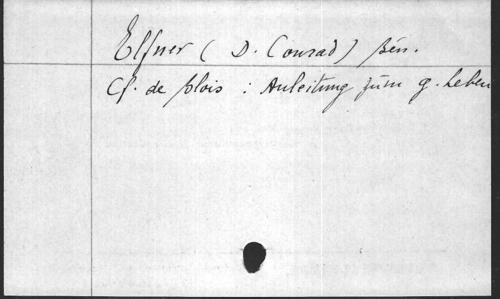 Elfner (D. Conrad) Bén.
Cf. de Blois : Anleitung zum g. Leben